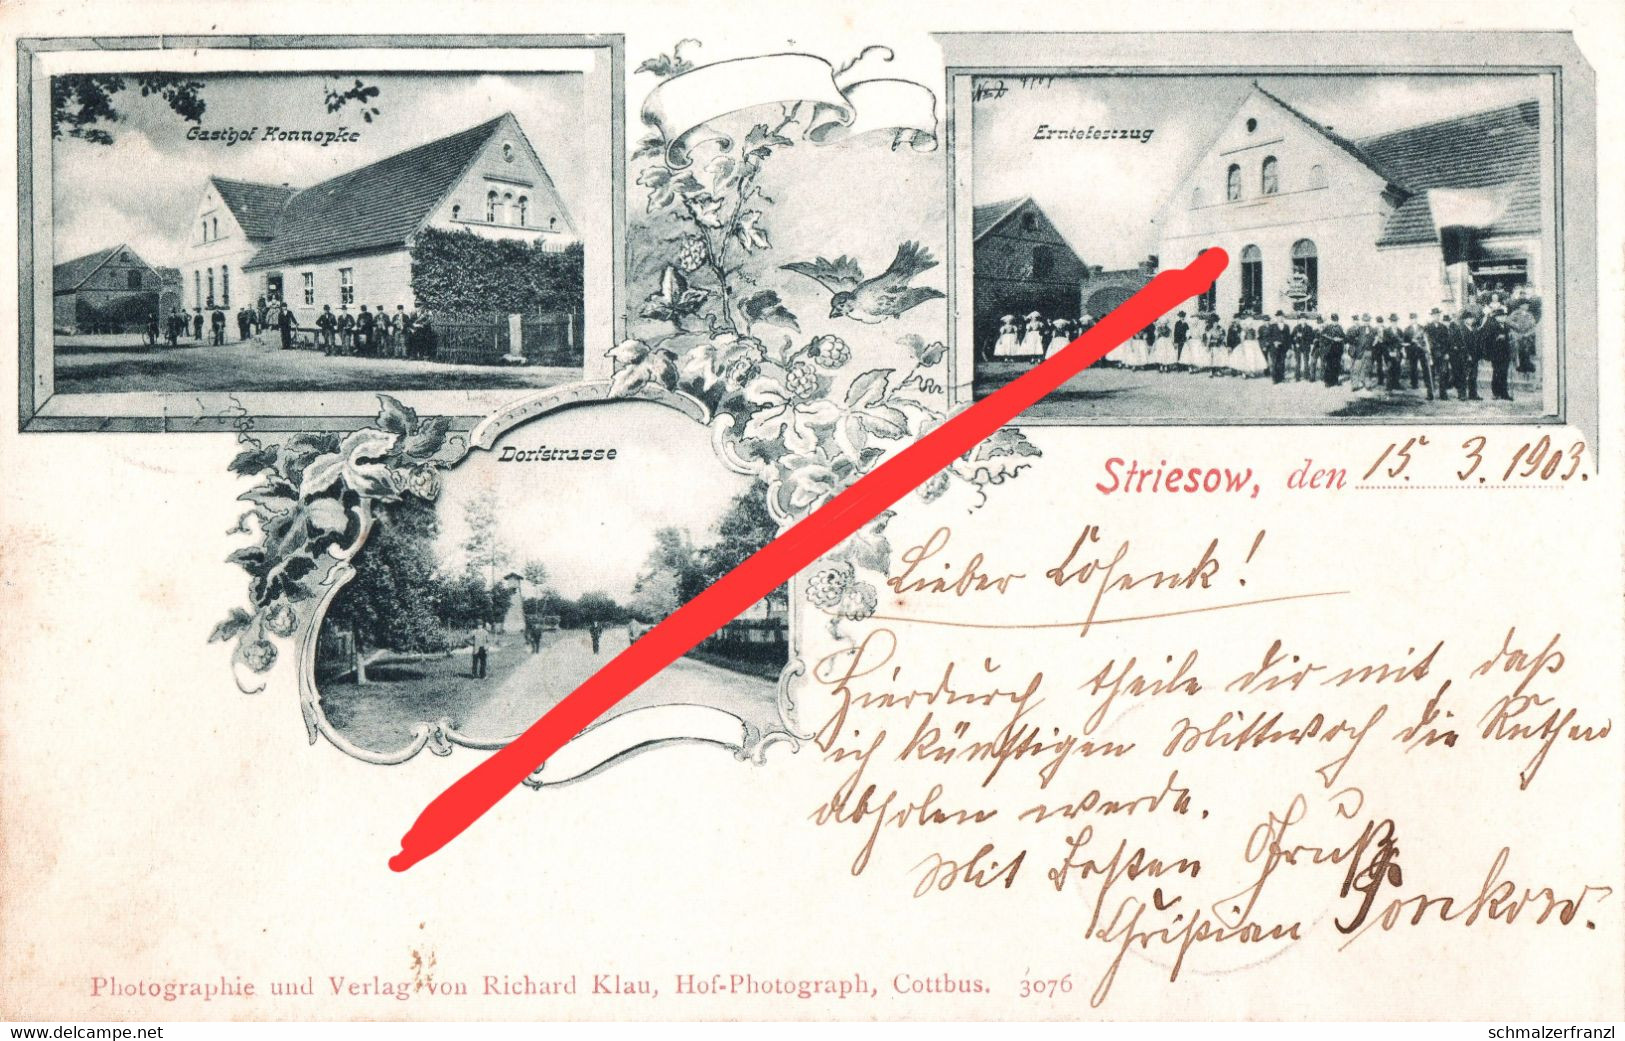 Gasthof Konnopke
Erntefestzug
Dorfstrasse
Striesow, den 15. 3. 1903.
Lieber Lösenk!
Hierdurch theile dir mit, daß
ich künftigen Mittwoch die Ruthen
abholen werde.
Mit besten Gruß
Christian Ponkow.
Photographie und Verlag von Richard Klau, Hof-Photograph, Cottbus. 3076
www.delcampe.net
schmalzerfranzl